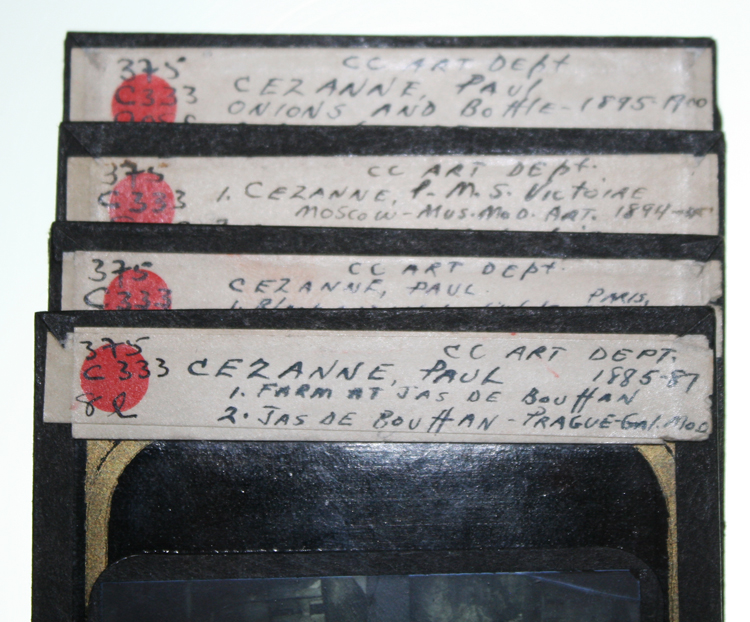 375 CC ART DEPT
C333 CEZANNE, PAUL
ONIONS AND BOTTLE - 1895-1900
375 CC ART DEPT.
C333 1. CEZANNE, P. M. S. VICTOIRE
MOSCOW - MUS. MOD. ART. 1894-
375 CC ART DEPT.
C333 CEZANNE, PAUL
PARIS,
375 CC ART DEPT.
C333 CEZANNE, PAUL 1885-87
1. FARM AT JAS DE BOUFFAN
2. JAS DE BOUFFAN - PRAGUE-Gal. Mod